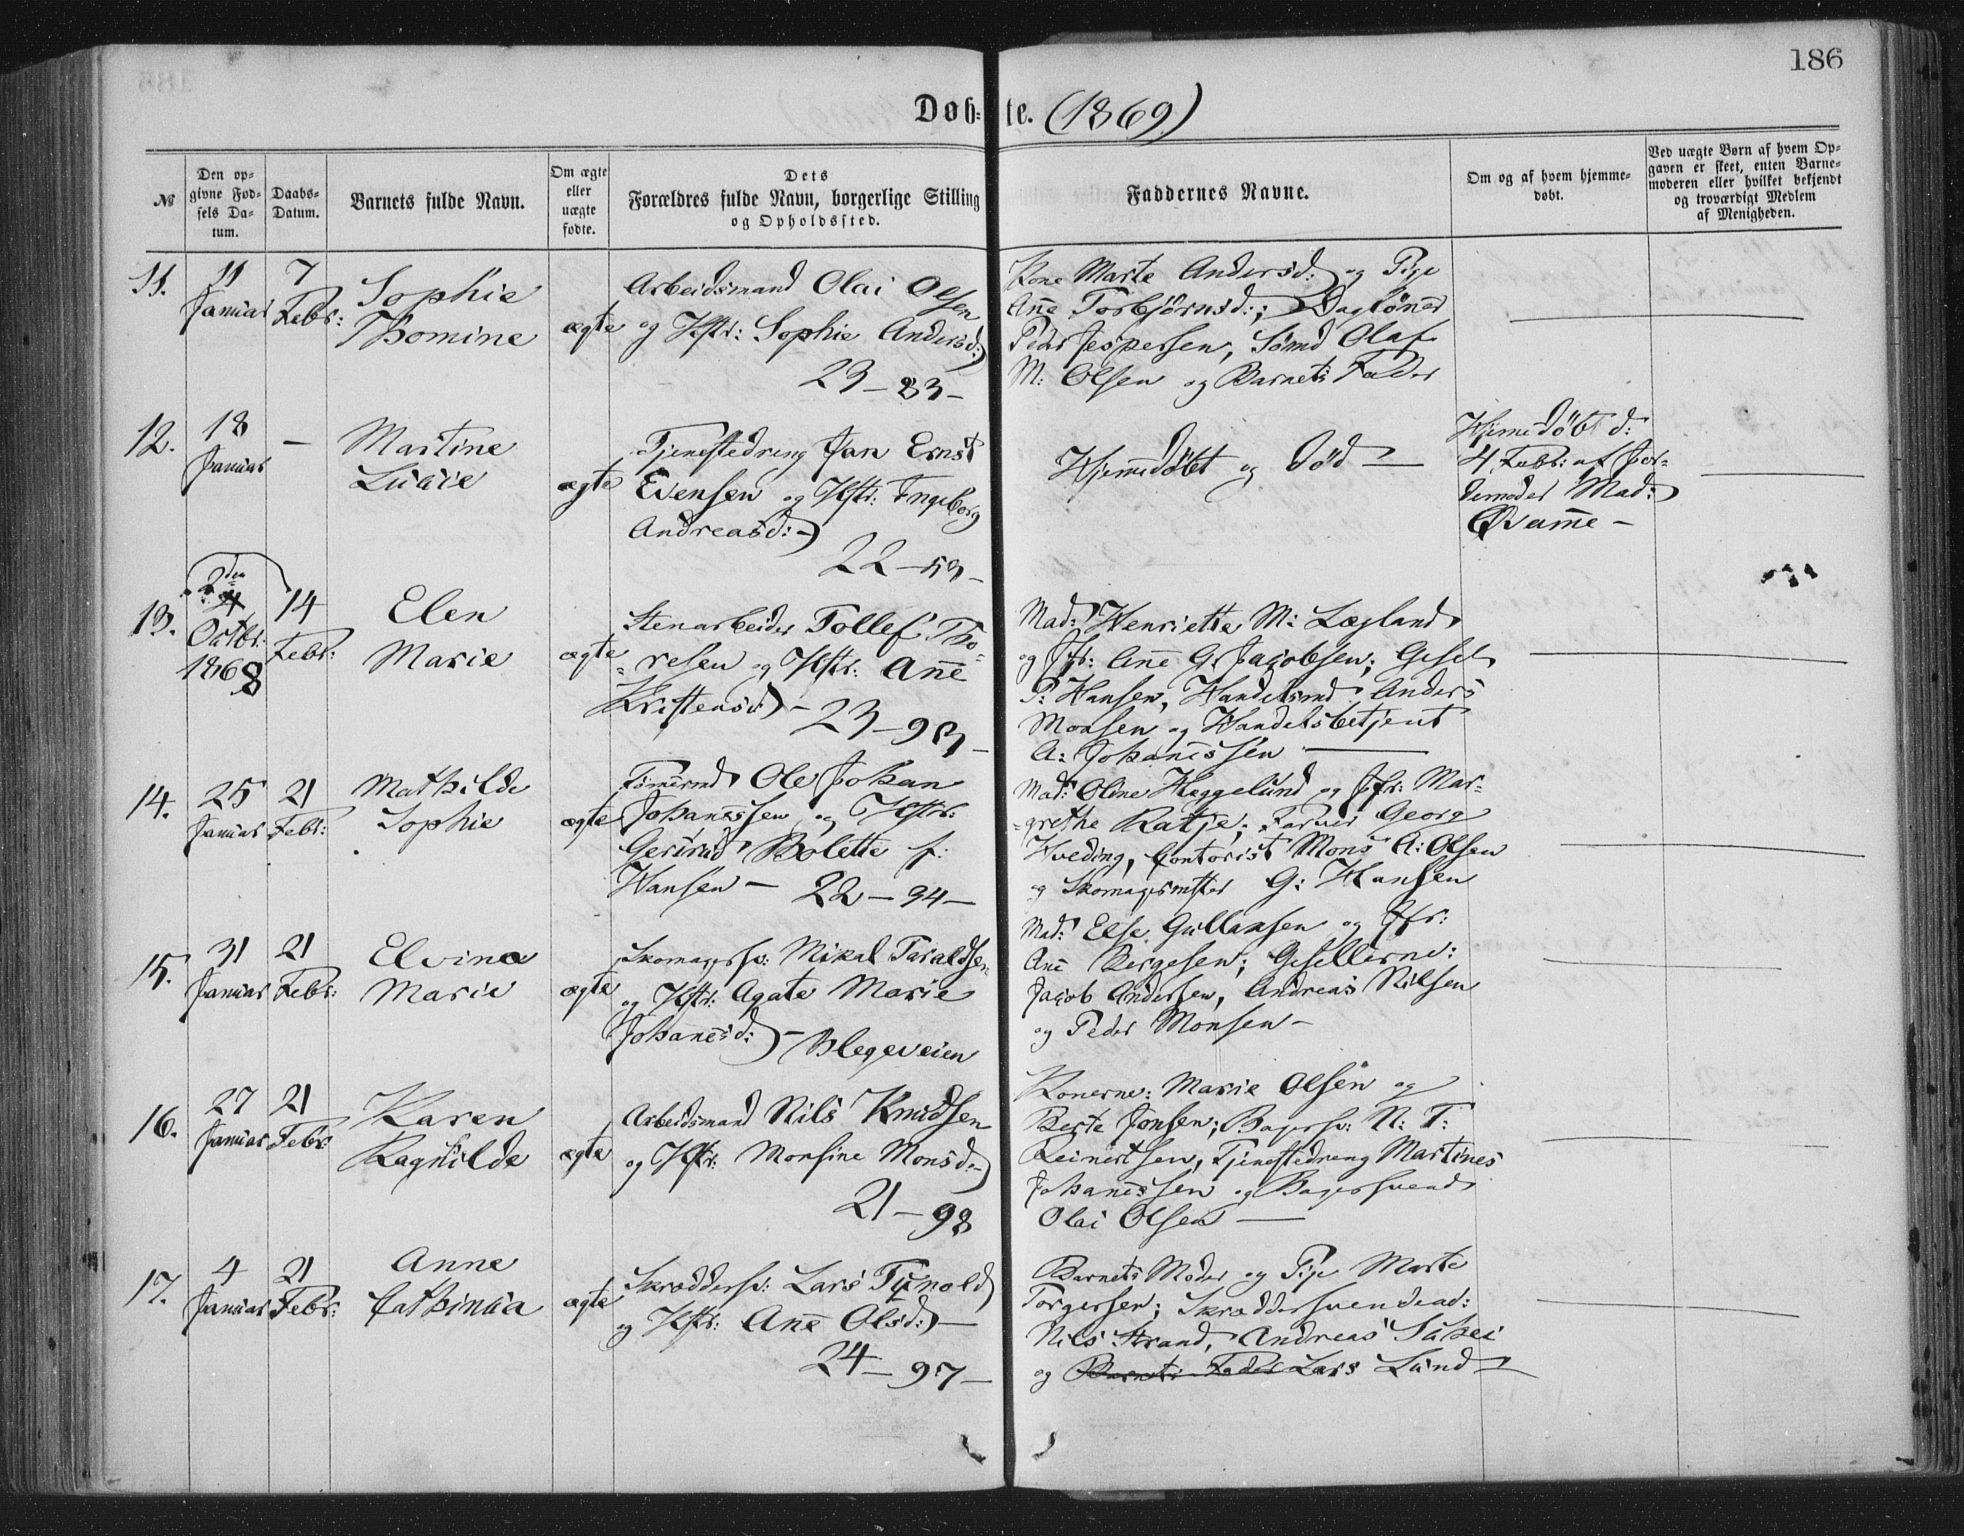 186
Døb= te. (1869)
№
Den op-
givne Fød-
sels Da-
tum.
Daabs-
Datum.
Barnets fulde Navn.
Om ægte
eller
uægte
fødte.
Dets
Forældres fulde Navn, borgerlige Stilling
og Opholdssted.
Faddernes Navne.
Om og af hvem hjemme-
døbt.
Ved uægte Børn af hvem Op-
gaven er skeet, enten Barne-
moderen eller hvilket bekjendt
og troværdigt Medlem
af Menigheden.
11.
11
Januar
7
Febr:
Sophie
Thomine
ægte
Arbeidsmand Olai Olsen
og Hstr: Sophie Andersd:
23 – 83 –
Kone Marte Andersd: og Pige
Anne Torbjørnsd:; Dagløner
Peder Jespersen, Sømd Olaf
M: Olsen og Barnets Fader
12.
18
Januar
–
Martine
Lucie
ægte
Tjenestedreng Jan Ernst
Evensen og Hstr: Ingeborg
Andreasd: –
22 – 53 –
Hjemmedøbt og død –
Hjemmedøbt d:
4 Febr: af Jor-
demoder Mad:
Qvamme –
13.
2den
Octbr:
1868
14
Febr:
Elen
Marie
ægte
Stenarbeider Tollef Tho-
resen og Hstr: Anne
Kristensd: –
23 – 93 –
Mad: Henriette M: Lægland
og Jfr: Anne G. Jacobsen; Gesel
P: Hansen, Handelsmd Anders
Monsen og Handelsbetjent
A: Johannessen
14.
25
Januar
21
Febr:
Mathilde
Sophie
ægte
Tømmermd Ole Johan
Johannessen og Hstr:
Gertrud Bolette f:
Hansen – 22 – 94 –
Mad: Oline Heggelund og Jfr: Mar-
grethe Ratje; Farver Georg
Hveding, Contorist Mons A: Olsen
og Skomagermster G: Hansen
15.
31
Januar
21
Febr:
Elvina
Marie
ægte
Skomagersv: Mikal Taraldsen
og Hstr: Agate Marie
Johannesd: – Blegeveien
Mad: Else Gullaksen og Jfr:
Anne Børgesen; Gesellerne:
Jacob Andersen, Andreas Nilsen
og Peder Monsen –
16.
27
Januar
21
Febr:
Karen
Ragnilde
ægte
Arbeidsmand Nils Knudsen
og Hstr: Monsine Monsd:
21 – 98
Konerne: Marie Olsen og
Berte Jonsen; Bagersv: N: T:
Reinertsen, Tjenestedreng Martines
Johannessen og Bagersvend
Olai Olsen
17.
4
Januar
21
Febr:
Anne
Cathinca
ægte
Skræddersv: Lars Tynold
og Hstr: Anne Olsd: –
24 – 97 –
Barnets Moder og Pige Marte
Torgersen; Skræddersvendene:
Nils Strand, Andreas
og Barnets Fader Lars Lund